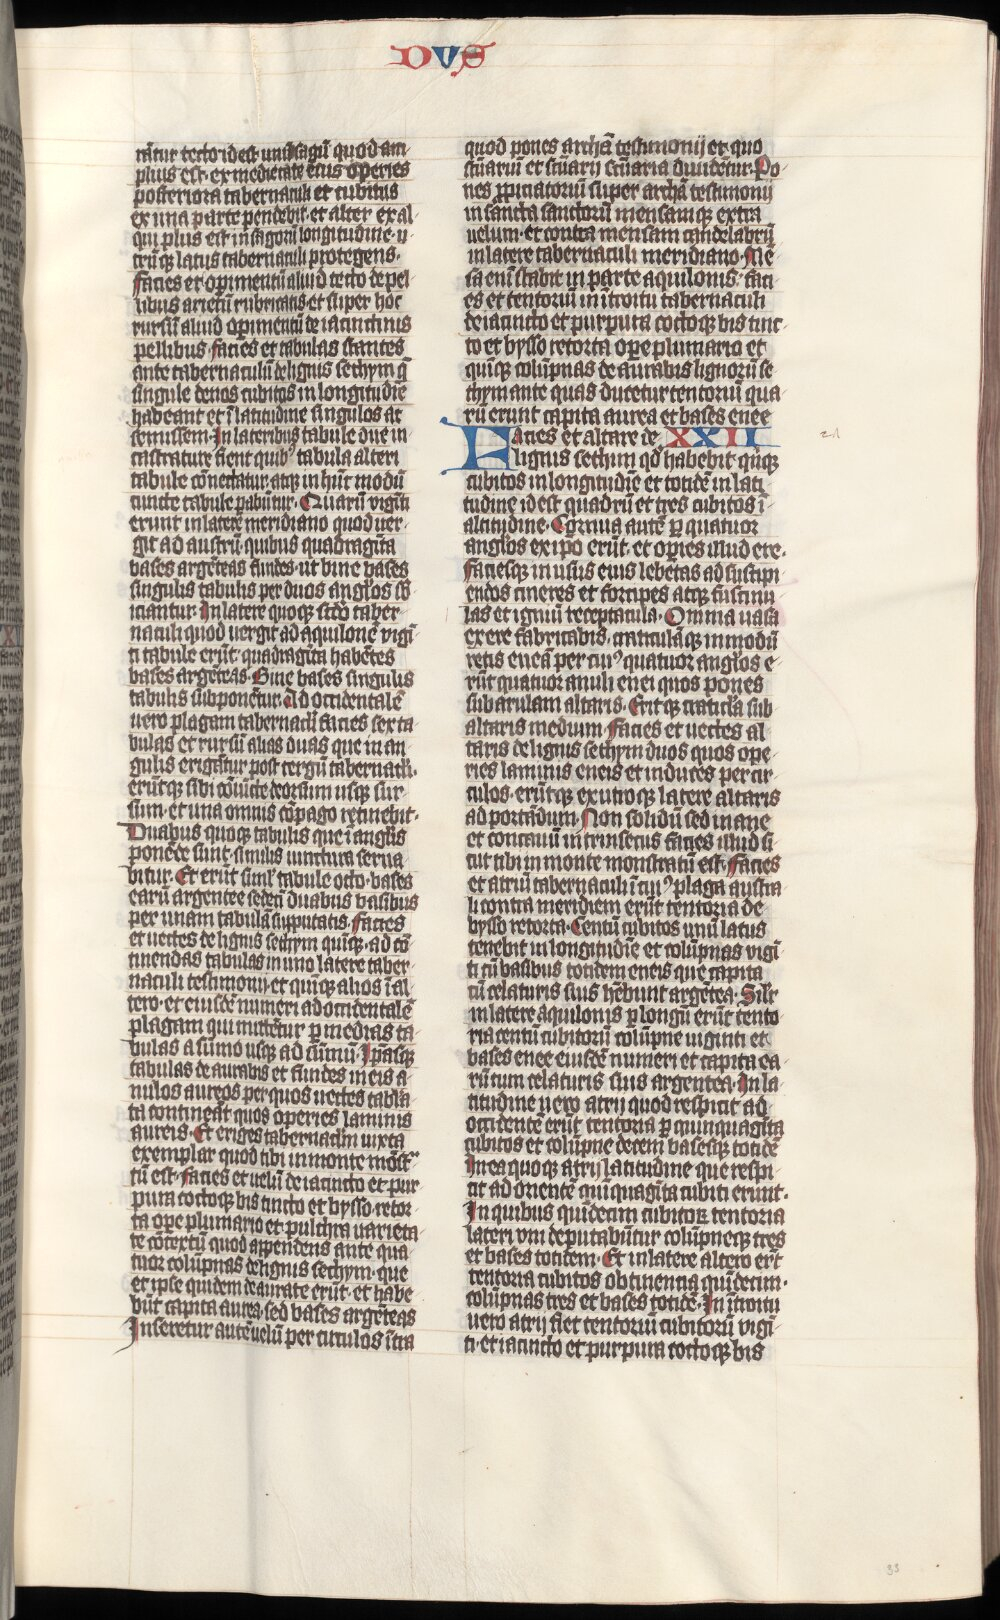 DVS
rātur tecto id est unū sagū quod am
plius est· ex medietate eius operies
posteriora tabernaculi et cubitus
ex una parte pendebit· et alter ex al
qui plus est in sagorū longitudine· u
trūq; latus tabernaculi protegens·
Facies et opimentū aliud tecto de pel
libus arietū rubricatis et super hoc
rursū aliud opimentū de iacinctinis
pellibus· facies et tabulas stantes
ante tabernaculū de lignis sethym q̄
singule denos cubitos in longitudīe
habeant et ī latitudine singulos ac
semissem· In lateribus tabule due in
castrature fient quibꝰ tabula alteri
tabule cōnectatur atq; in hūc modū
cuncte tabule pabūtur· Quarū vigīti
erunt in latere meridiano quod uer
git ad austrū· quibus quadragīta
bases argēteas fundes· ut bine bases
singulis tabulis per duos angl'os sb̄
iciantur· In latere quoq; scd̄o taber
naculi quod uergit ad aquilonē vigī
ti tabule erūt· quadragīta habētes
bases argēteas· Bine bases singulis
tabulis subponētur· Ad occidentalē
uero plagam tabernacl'i facies sex ta
bulas et rursū alias duas que in an
gulis erigātur post tergū tabernacl'i·
erūtq; sibi cōiūcte deorsum usq; sur
sum· et una omnis cōpago retinebit·
Duabus quoq; tabulis que ī anglis
ponēde sunt· similis iunctura serua
bitur· Et erūt siml' tabule octo· bases
earū argentee sedecī duabus basibus
per unam tabulā supputatis· Facies
et uectes de lignis sethym quīq; ad cō
tinendas tabulas in uno latere taber
naculi testimonii et quīq; alios ī al
tero· et eiusdē numeri ad occidentalē
plagam qui mittētur p̱ medias ta
bulas a sūmo usq; ad sūmū· Ip̄asq;
tabulas deaurabis et fundes in eis a
nulos aureos per quos uectes tabla
ta contineāt quos operies laminis
aureis· Et eriges tabernaclm iuxta
exemplar quod tibi in monte mōst̄
tū est· Facies et uelū de iacincto et pur
pura coctoq; bis tincto et bysso retor
ta ope plumario et pulchra uarieta
te cōtextū quod appendens ante qua
tuor colūpnas de lignis sethym· que
et ipse quidem deaurate erūt· et habe
būt capita aurea· sed bases argēteas
Inseretur autē uelū per circulos ītra
quod pones archā testimonij et quo
scūariū et scūarij scūaria diuidētur· Po
nes ꝓpiciatoriū super archā testimonii
in sancta sanctorū mensamq; extra
uelum· et contra mensam candelabrū
in latere tabernaculi meridiano· Mē
sa enī stabit in parte aquilonis· faci
es et tentoriū in ītroitu tabernaculi
de iacincto et purpura coctoq; bis tinc
to et bysso retorta ope plumario et
quīq; colūpnas deaurabis lignorū se
thym ante quas ducetur tentoriū qua
rū erunt capita aurea et bases enee
Facies et altare de XXVII
lignis sethim qd̄ habebit quīq;
cubitos in longitudīe et totidē in lati
tudine id est quadrū et tres cubitos ī
altitudine· Cornua autē p̱ quatuor
angl'os ex ip̄o erūt· et opies illud ere·
Faciesq; in usus eius lebetas ad suscipi
endos cineres et forcipes atq; fuscinu
las et igniū receptacula· Omnia uasa
ex ere fabricabis craticulāq; in modū
retis eneā per cuiꝰ quatuor angl'os e
rūt quatuor anuli enei quos pones
sub arulam altaris· Eritq; craticl'a sub
altaris medium· Facies et uectes al
taris de lignis sethym duos quos ope
ries laminis eneis et induces per cir
culos· erūtq; ex utroq; latere altaris
ad portādum· Non solidū sed inane
et concauū intrinsecus facies illud si
cut tibi in monte monstratū est· Facies
et atriū tabernaculi ī cuiꝰ plaga austra
li contra meridiem erūt tentoria de
bysso retorta· Centū cubitos unū latus
tenebit in longitudīe et colūpnas vigī
ti cū basibus totidem eneis que capita
cū celaturis suis hēbunt argētea· Silr
in latere aquilonis p̱ longū erūt tento
ria centū cubitorū colūpne uiginti et
bases enee eiusdē numeri et capita ea
rū cum celaturis suis argentea· In la
titudine uero atrij quod respicit ad
occidentē erūt tentoria p̱ quinquagīta
cubitos et colūpne decem basesq; totidē
In ea quoq; atrij latitudine que respi
cit ad orientē quīquagīta cubiti erunt·
In quibus quidecim cubitoꝝ tentoria
lateri vni deputabūtur colūpneq; tres
et bases totidem· Et in latere altero erūt
tentoria cubitos obtinentia quīdecim·
colūpnas tres et bases totidē· In ītroitu
uero atrij fiet tentoriū cubitorū vigī
ti· et iacincto et purpura coctoq; bis
33